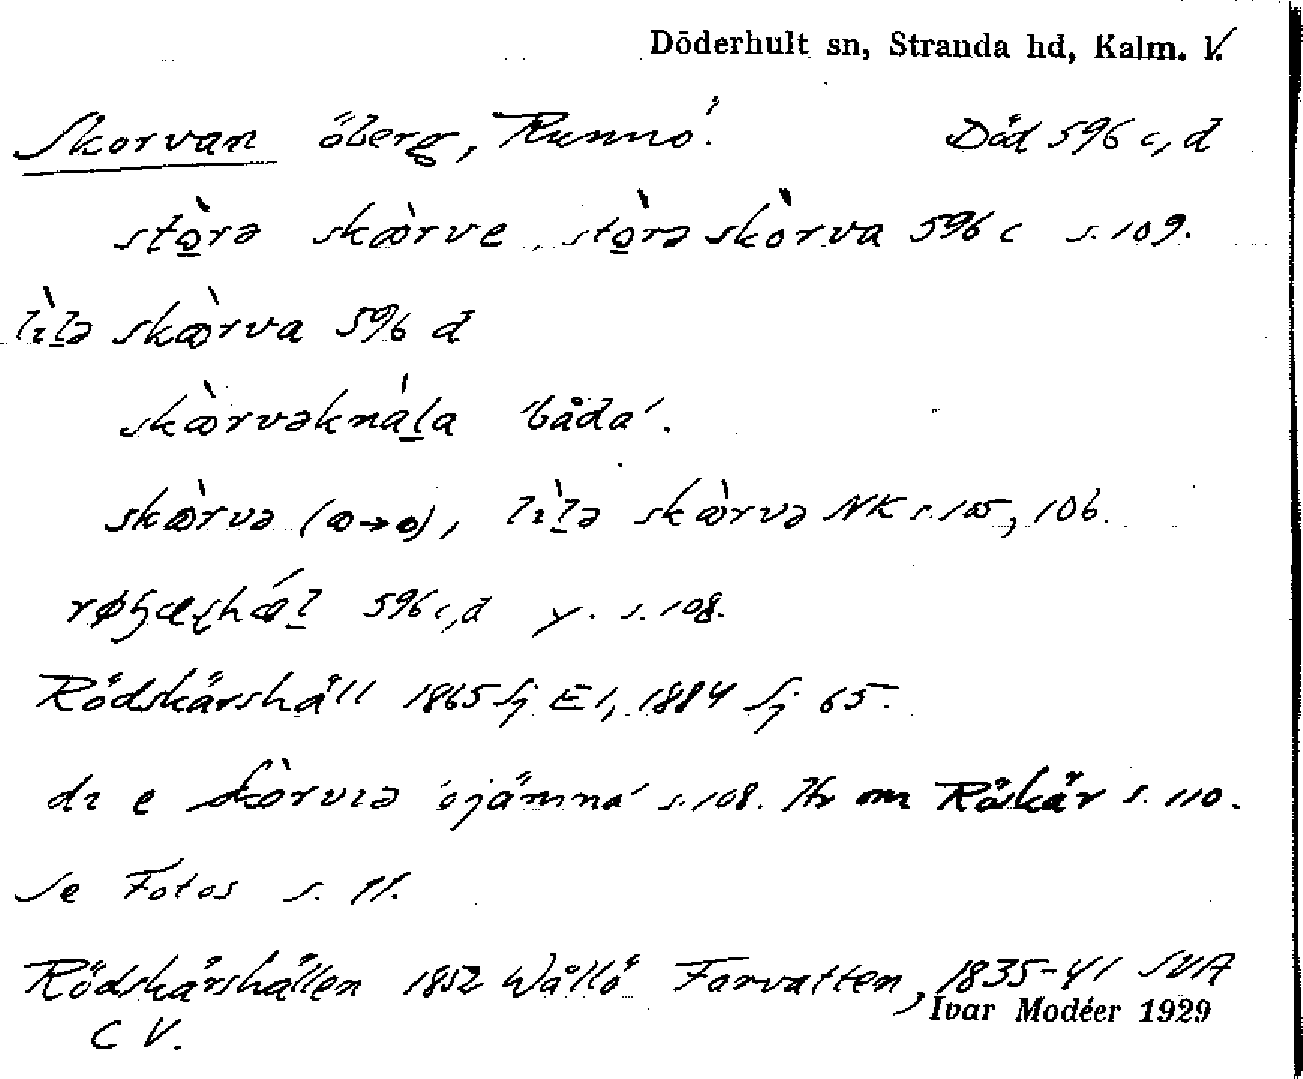 Döderhult sn, Stranda hd, Kalm. l.
Skorvan öberg, Runnö. Död 596 c, d
stò̱rə skæ̀rve, stò̱rə skòrva 596 c s. 109.
lìḻə skæ̀rva 596 d
skæ̀rvəkná̱la 'båda'.
skæ̀rvə ( → ), lìḻə skæ̀rvə NK s. 105, 106.
596 c, d y. s. 108.
Rödskärshäll 1865 Sj E1, 1884 Sj 65.
dı e skòrvıə 'ojämna' s. 108. Hr om Röskär s. 110.
Se Fotos s. 11.
Rödskärshällen 1852 Wållö Farvatten, 1835-41 SVA
C V.
Ivar Modéer 1929